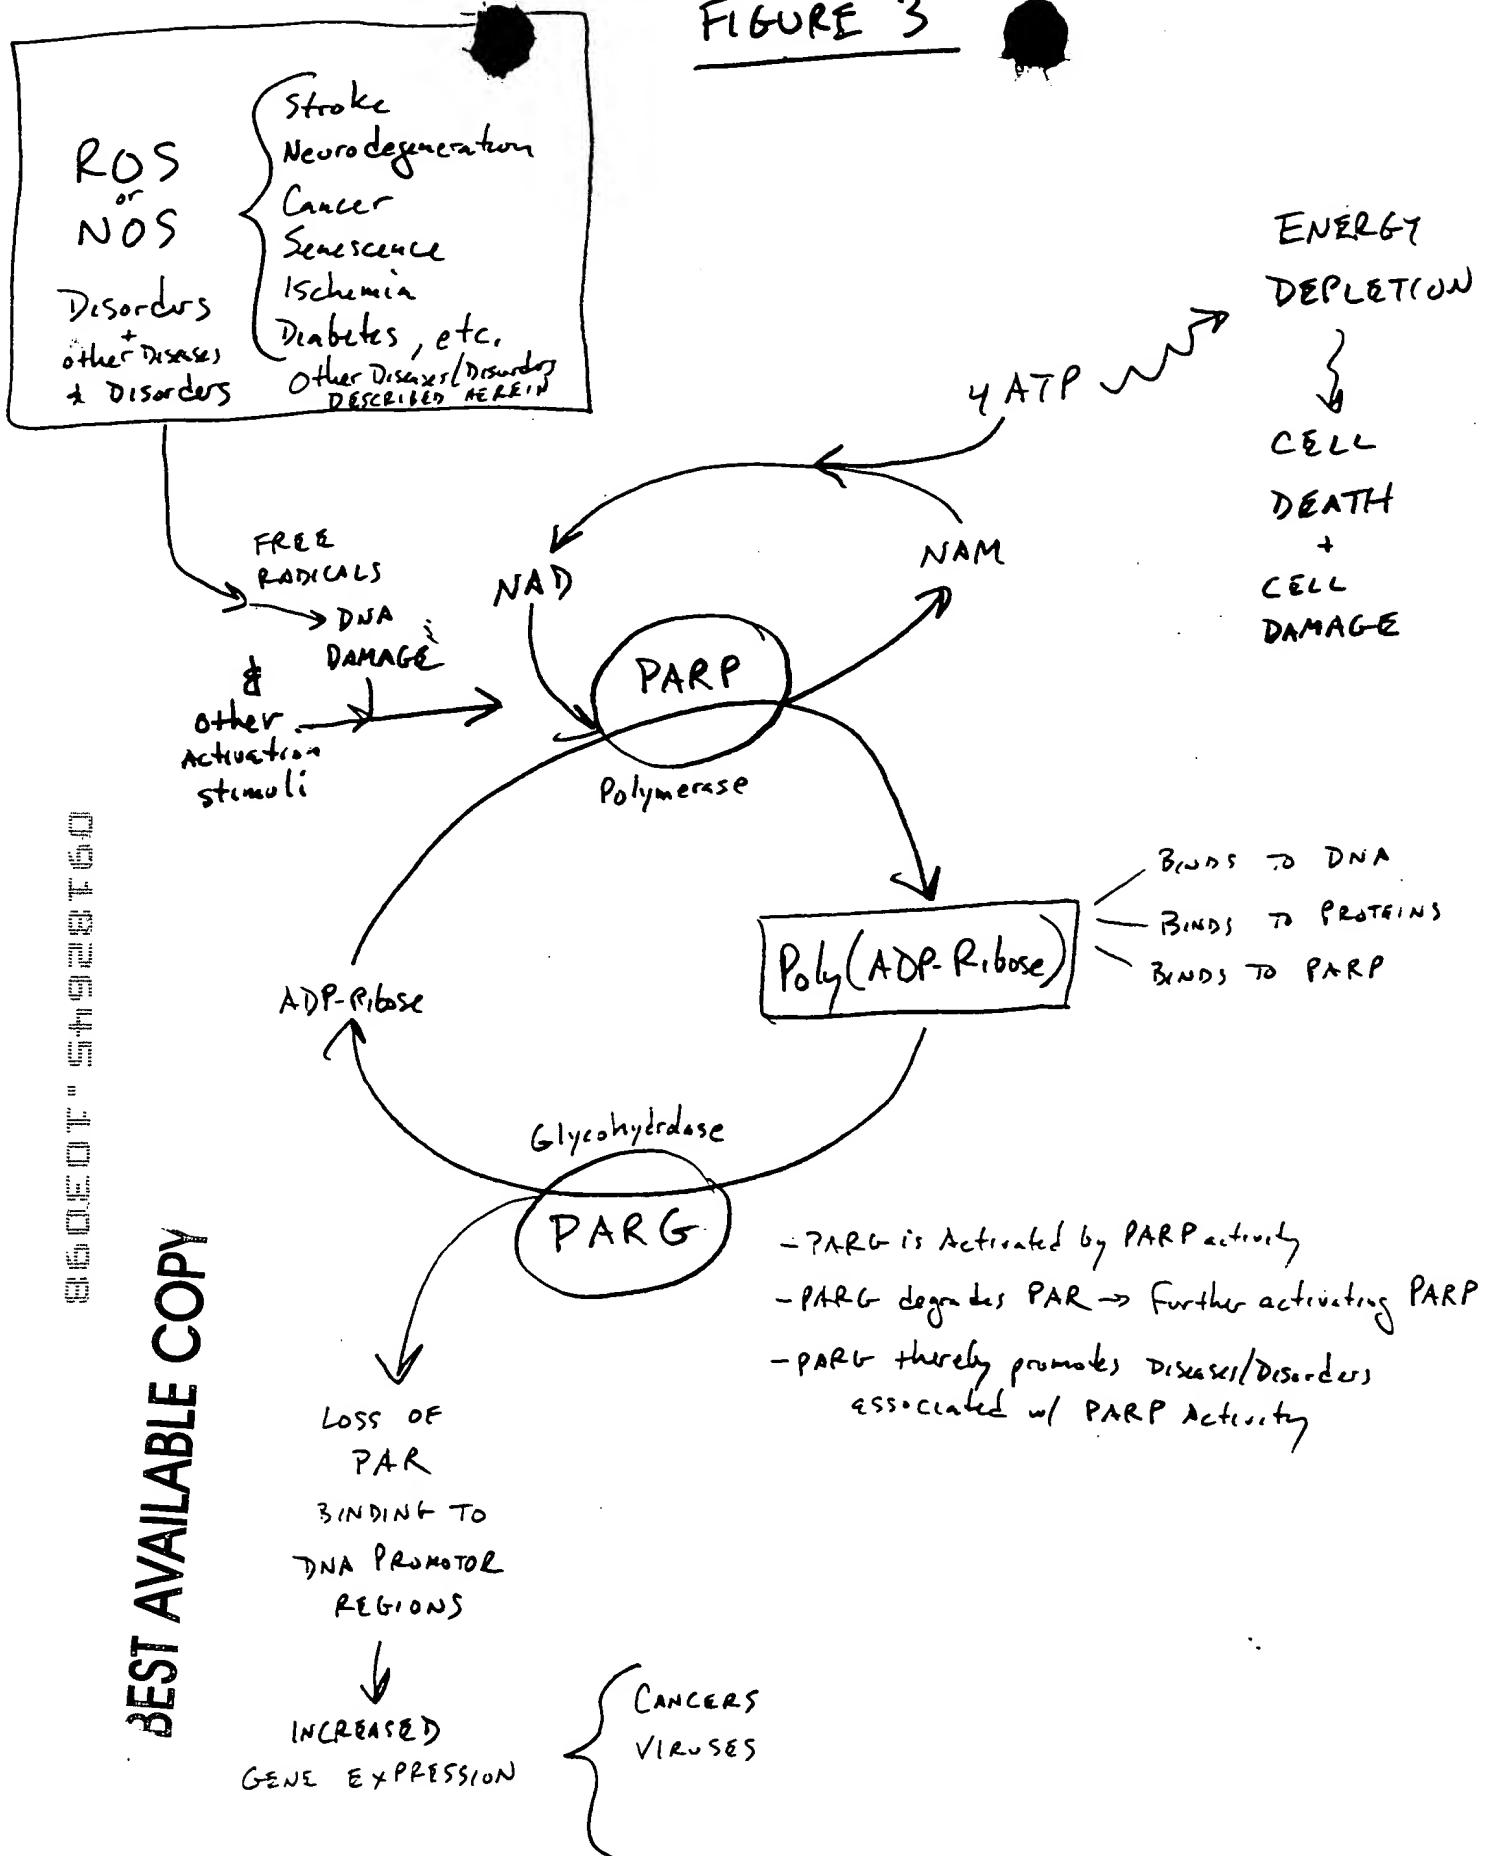 FIGURE 3
ROS
or
NOS
Disorders
+
other Diseases
& Disorders
Stroke
Neurodegeneration
Cancer
Senescence
Ischemia
Diabetes, etc.
Other Diseases/Disorders
DESCRIBED HEREIN
ENERGY
DEPLETION
CELL
DEATH
+
CELL
DAMAGE
4 ATP
NAD
NAM
FREE
RADICALS
DNA
DAMAGE
&
other
Activation
stimuli
PARP
Polymerase
Poly(ADP-Ribose)
BINDS TO DNA
BINDS TO PROTEINS
BINDS TO PARP
ADP-Ribose
Glycohydrolase
PARG
- PARG is Activated by PARP activity
- PARG degrades PAR → Further activating PARP
- PARG thereby promotes Diseases/Disorders
associated w/ PARP Activity
LOSS OF
PAR
BINDING TO
DNA PROMOTOR
REGIONS
INCREASED
GENE EXPRESSION
CANCERS
VIRUSES
09182645.103098
BEST AVAILABLE COPY